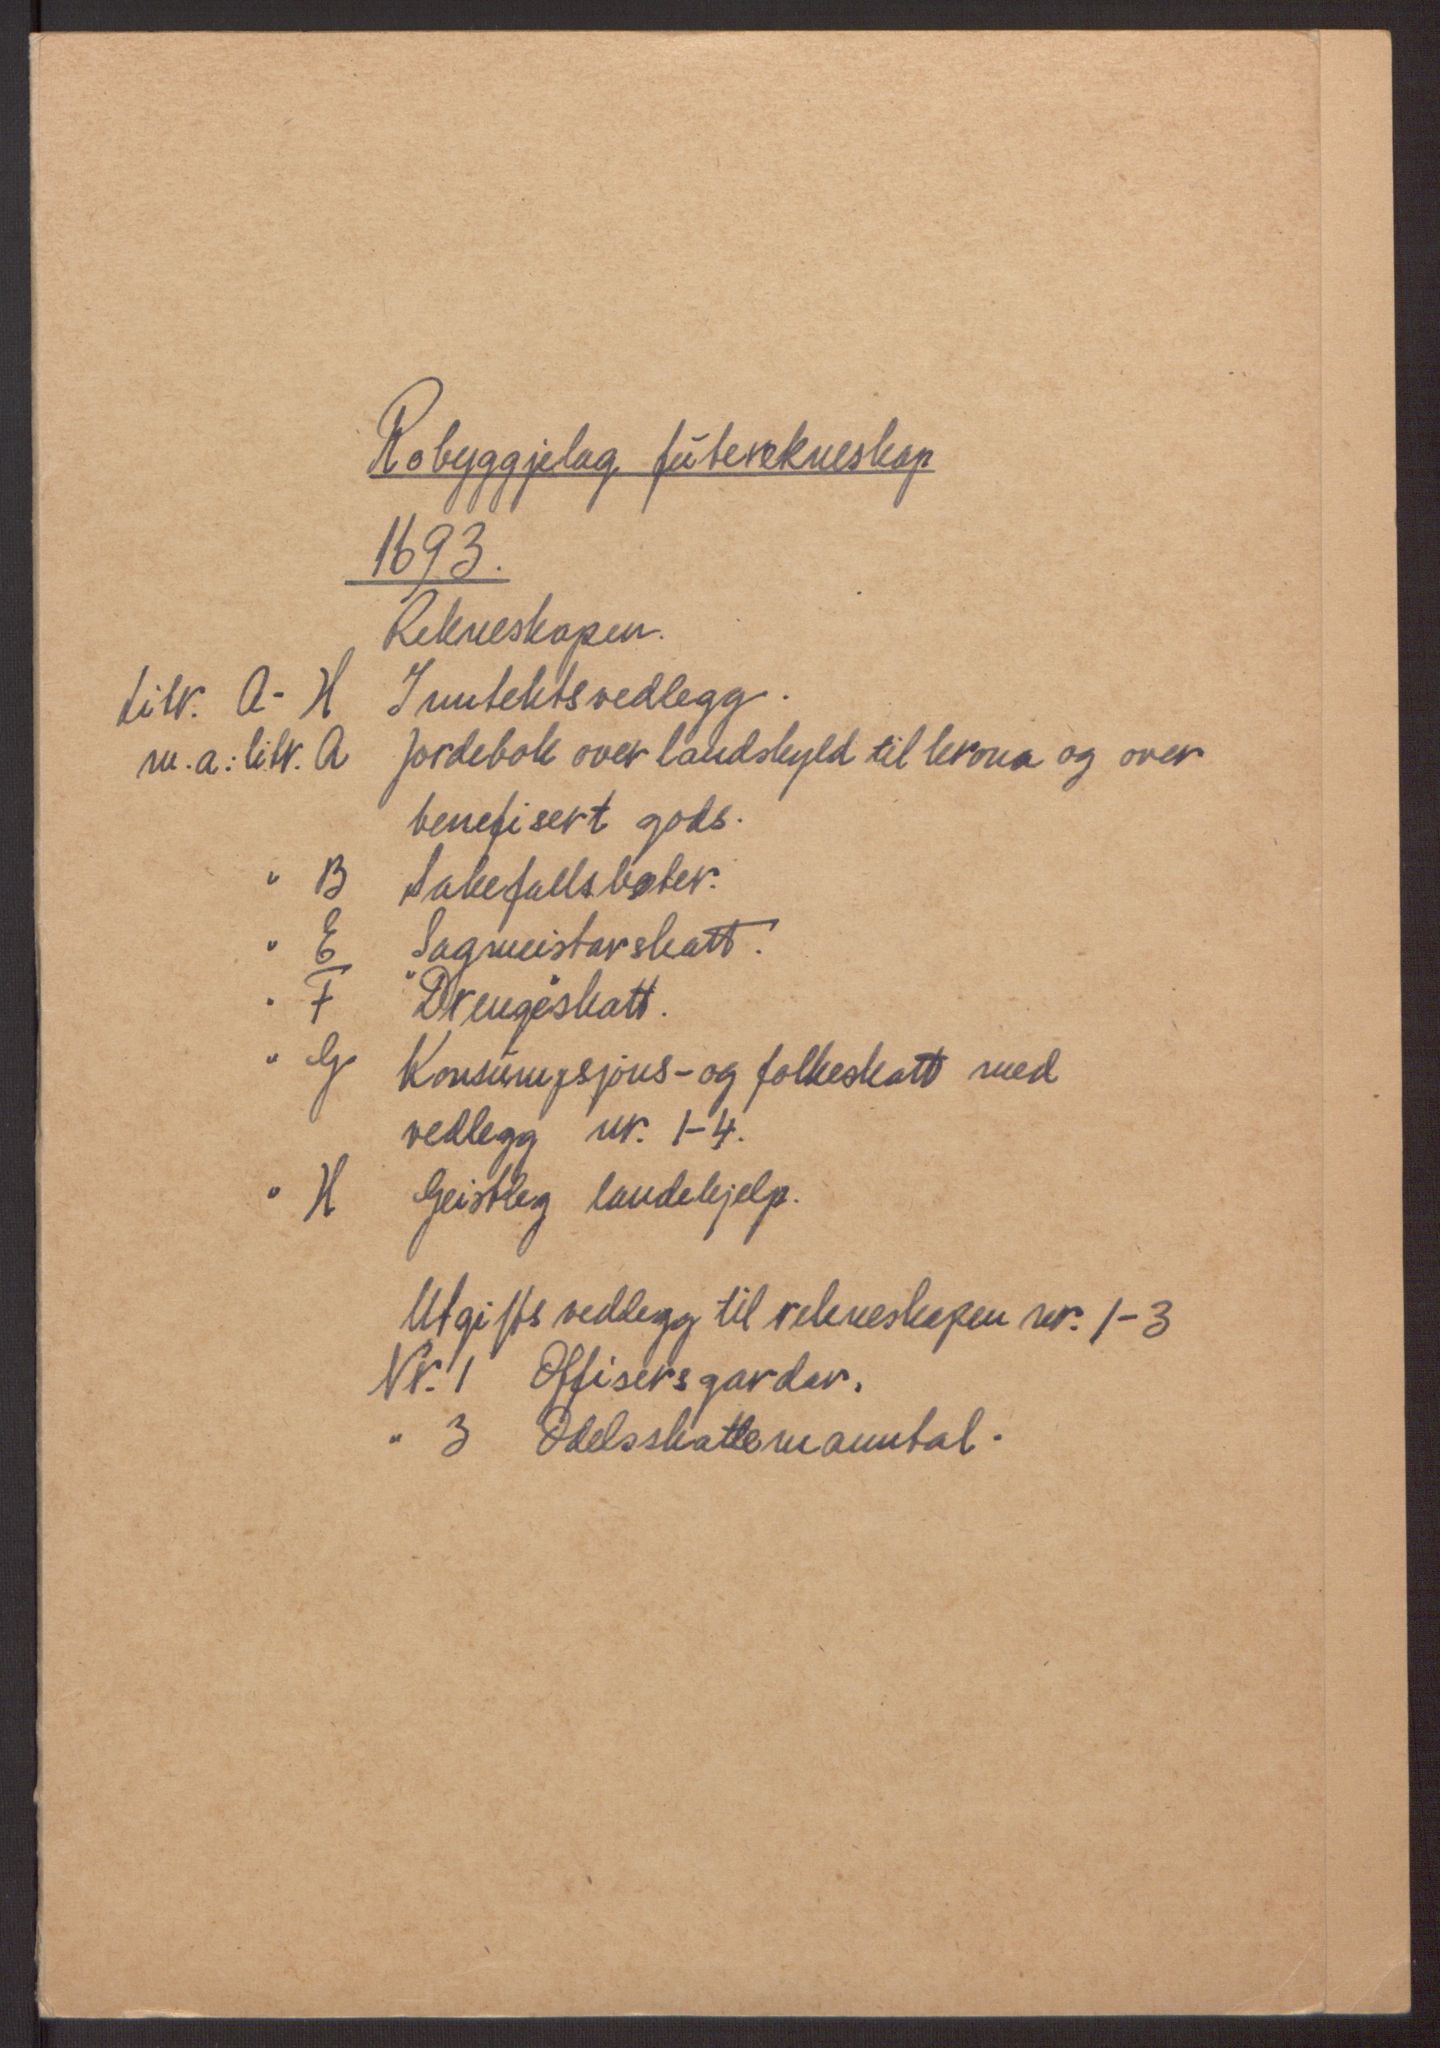 Robyggjelag futerekneskap
1693.
Rekneskapen.
Litr. A- H Inntektsvedlegg.
m.a: litr. A Jordebok over landskyld til krona og over
benefisert gods.
" B Sakefallsbøter.
" E Sagmeistarskatt.
" F "Drenge"skatt.
" G Konsumpsjons- og folkeskatt med
vedlegg nr. 1-4.
" H Geistleg landehjelp.
Utgiftsvedlegg til rekneskapen nr. 1-3
Nr. 1 Offisersgardar.
" 3 Odelsskattemanntal.